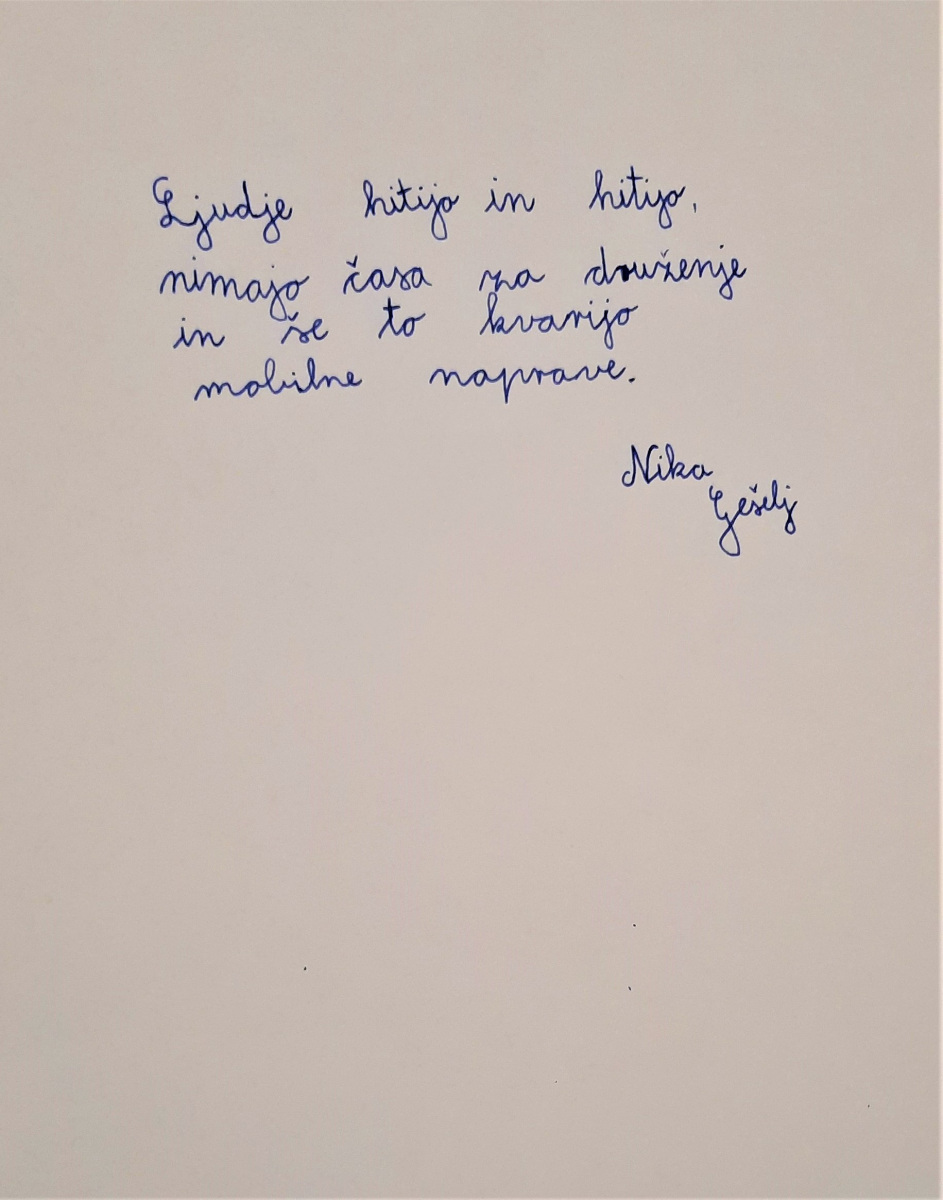 Ljudje hitijo in hitijo,
nimajo časa za druženje
in še to kvarijo
mobilne naprave.
Nika
Gešelj